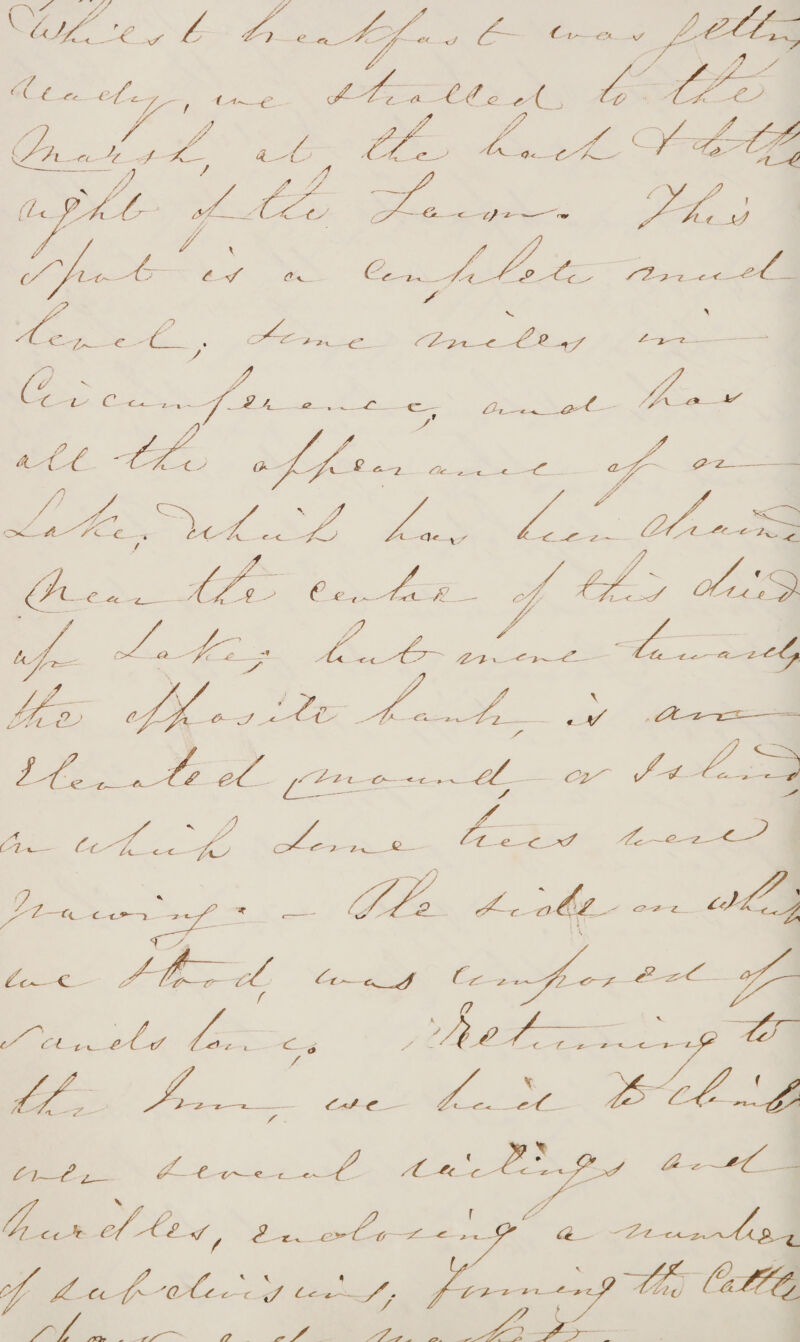 Whilst breakfast was getting
ready, we strolled to the
Marsh, at the back & to the
right of the Town. This
spot is a Complete mud
level; some miles in
Circumference, and has
all the appearance of a
Lake, which has been drain'd
Near the centre of this dried
up Lake; but more towards
the opposite bank, is an
Elevated mound, or Island
on which some trees were
growing. — The side on which
we stood, was composed of
Sandstone. Returning to
the Inn, we had to climb
over several railings and
hurdles, enclosing a number
of subdivisions, forming the Cattle